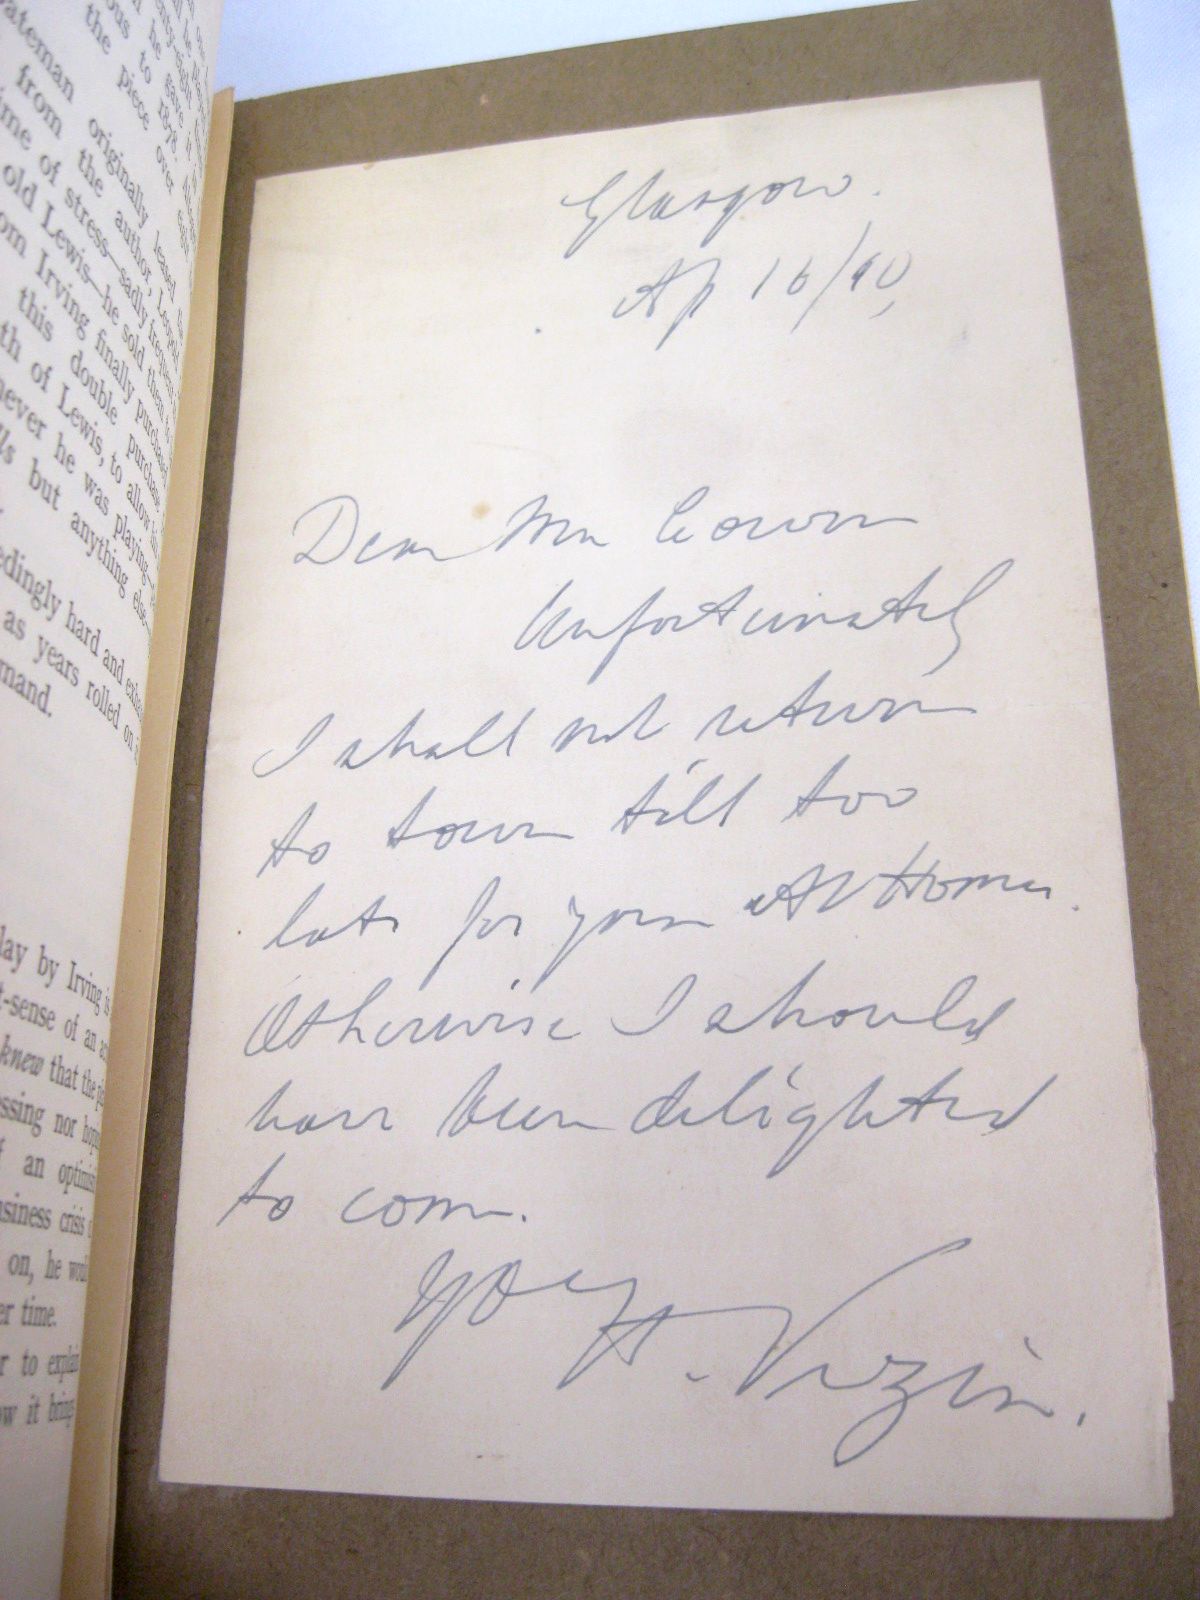 ateman originally leased
from the author, Leopold
ime of stress—sadly frequent
old Lewis—he sold them
om Irving finally purchased
this double purchase
th of Lewis, to allow
never he was playing
lls but anything else
edingly hard and
as years rolled on
mand.
lay by Irving is
t-sense of an
knew that the
ssing nor
f an
usiness crisis
on, he
er time.
r to explain
ow it brings
Glasgow.
Ap 16/90,
Dear Mr Cowen
Unfortunately
I shall not return
to town till too
late for your At Home.
Otherwise I should
have been delighted
to come.
Yrs
H. Vezin.